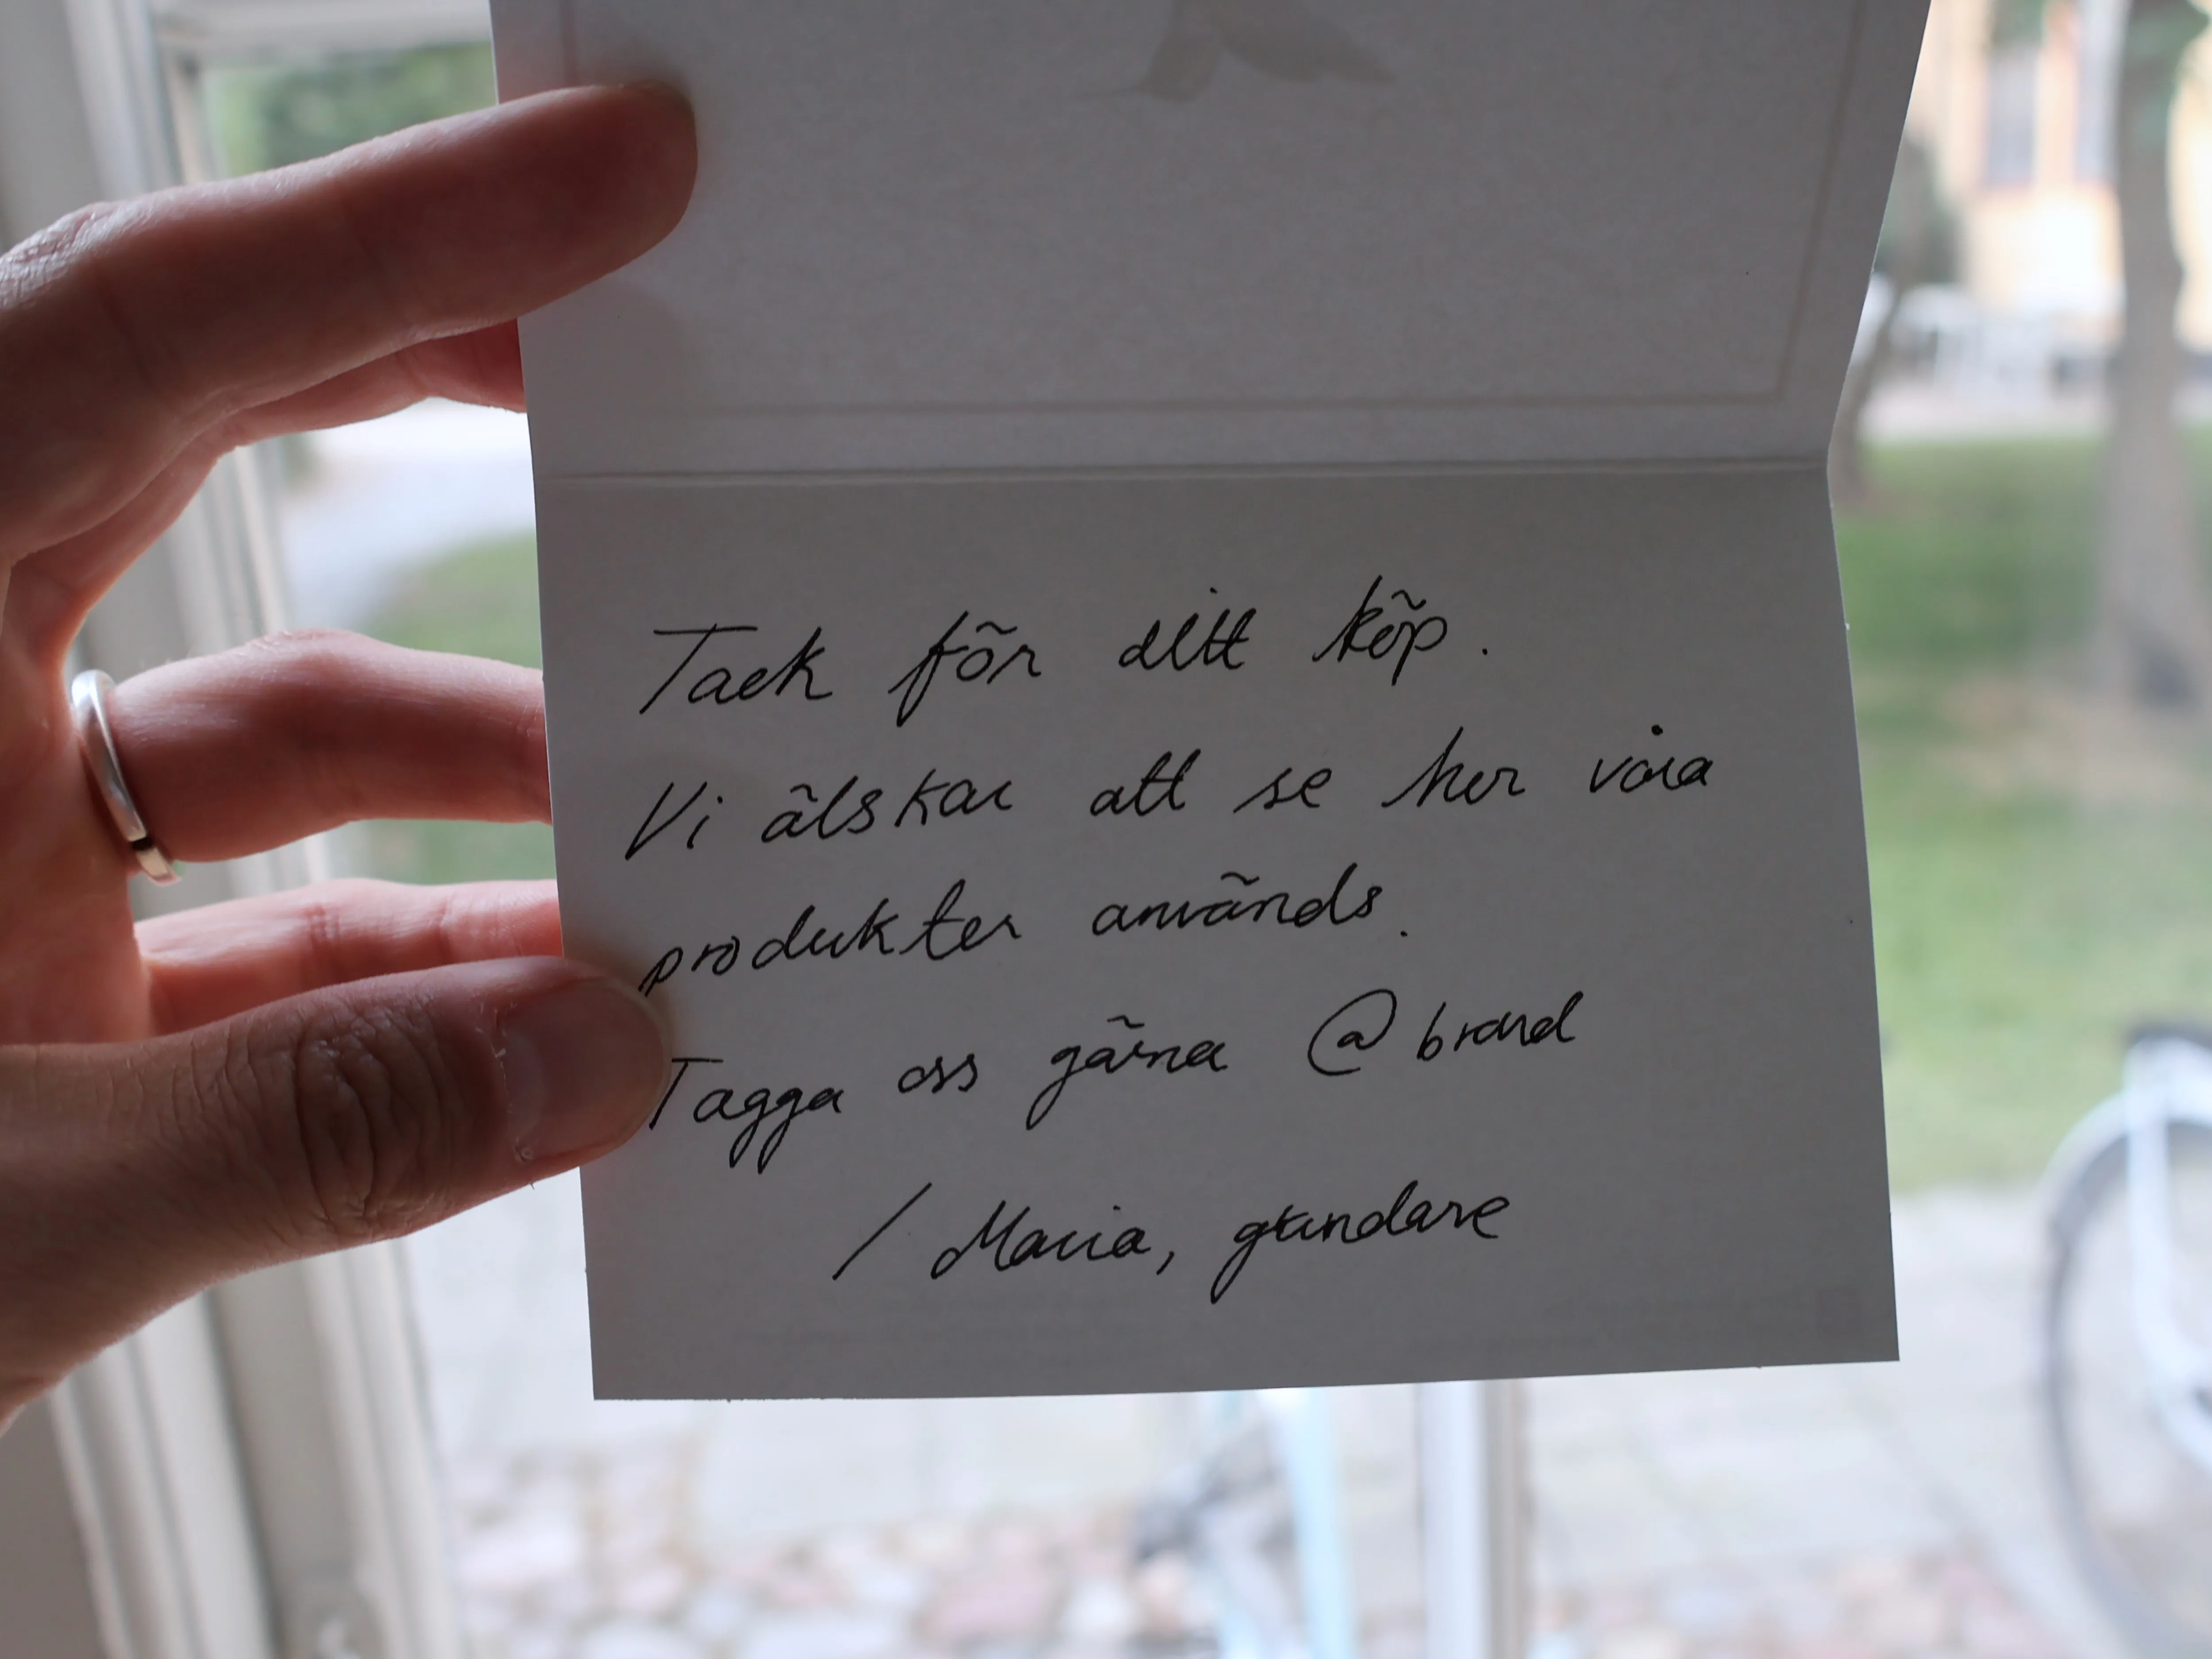 Tack för ditt köp.
Vi älskar att se hur våra
produkter används.
Tagga oss gärna @brand
/ Maria, grundare